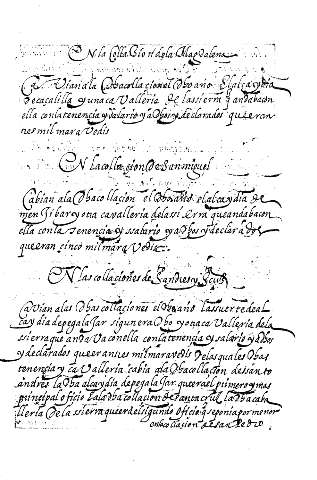 En la Collaçio n de la Magdalena
Ca vian a la dha collacion el dho año el alcaydia
de caçalilla y una cavalleria de la sierra q andaba con
ella con la tenencia y salario y adhos y declarados que eran
nes mil maravedis
En la collaçion de San miguel
Cabian a la dha collacion el dho año el alcaydia de
men Jibar y otra cavalleria de la sierra que andaba con
ella con la tenencia y ssalario y a dhos y declarados
que eran cinco mil maravedis
En las collaçiones de Sandres y Scruz
Ca vian a las dhas collaciones el dho año la suerte de al
caydia de pegalajar sigun era dho y otra cavalleria de la
sierra que andava con ella con la tenencia y salario y dhos
y declarados que er an siete mil maravedis de las quales dhas
tenencia y ca valleria cabia a la dha collacion de santo
andres la dha alcaydia de pegalajar que era el primero y mas
principal oficio y a la dha collacion de santa cruz la dha caba
lleria de la ssierra que er del sigundo oficio q se ponia por menor
en la collacion de san Pedro